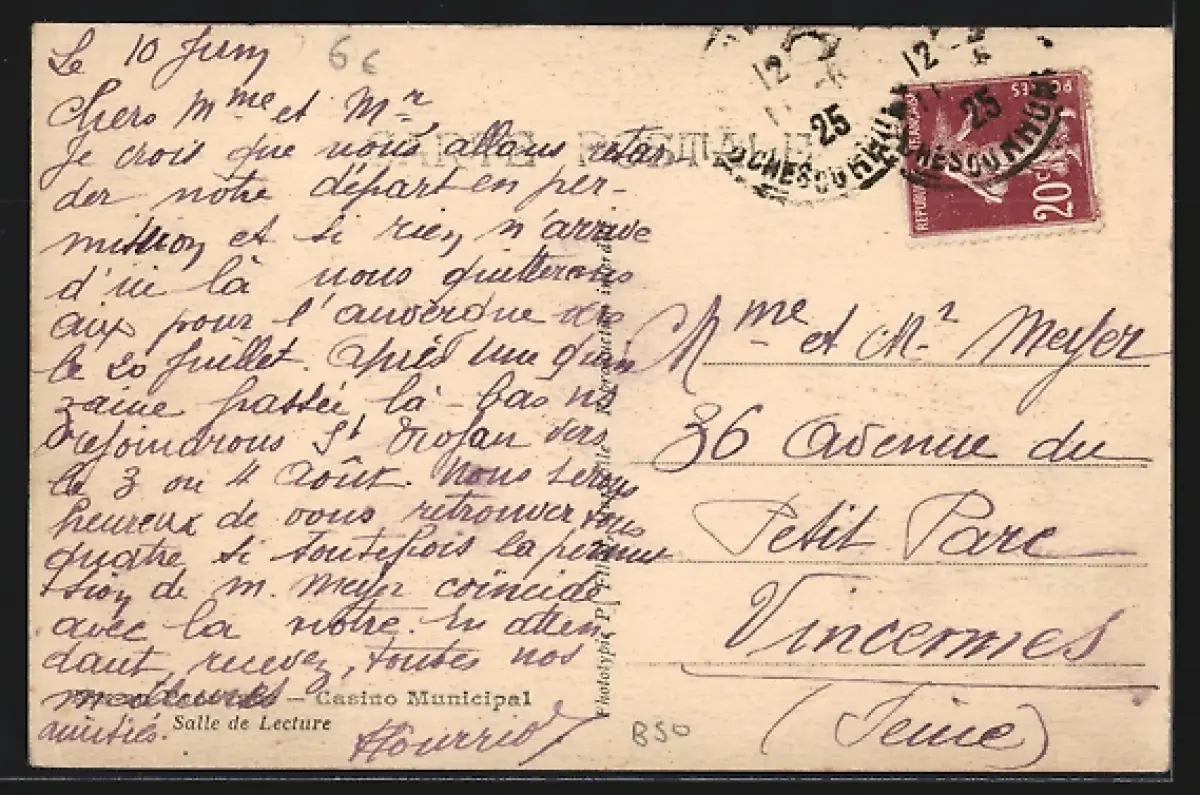 Le 10 Juin
6€
Chers Mme et Mr,
CARTE POSTALE
Je crois que nous allons retar
der notre départ en per-
mission et si rien n'arrive
d'ici là nous quitterons
Aix pour l'auvergne
le 20 Juillet. Après une quin
zaine passée là-bas ns
rejoindrons St Trojan vers
le 3 ou 4 Août. Nous serons
heureux de vous retrouver tous
quatre si toutefois la permis
sion de M. Meyer coincide
avec la notre. En atten
dant, recevez, toutes nos
meilleures
amitiés.
Casino Municipal
Salle de Lecture
B50
Reproduction interdite
Phototypie P.
12
25
12
25
BOUCHES DU RHONE
BOUCHES DU RHONE
REPUBLIQUE FRANÇAISE
POSTES
20c
Mme et Mr Meyer
36 Avenue du
Petit Parc
Vincennes
(Seine)